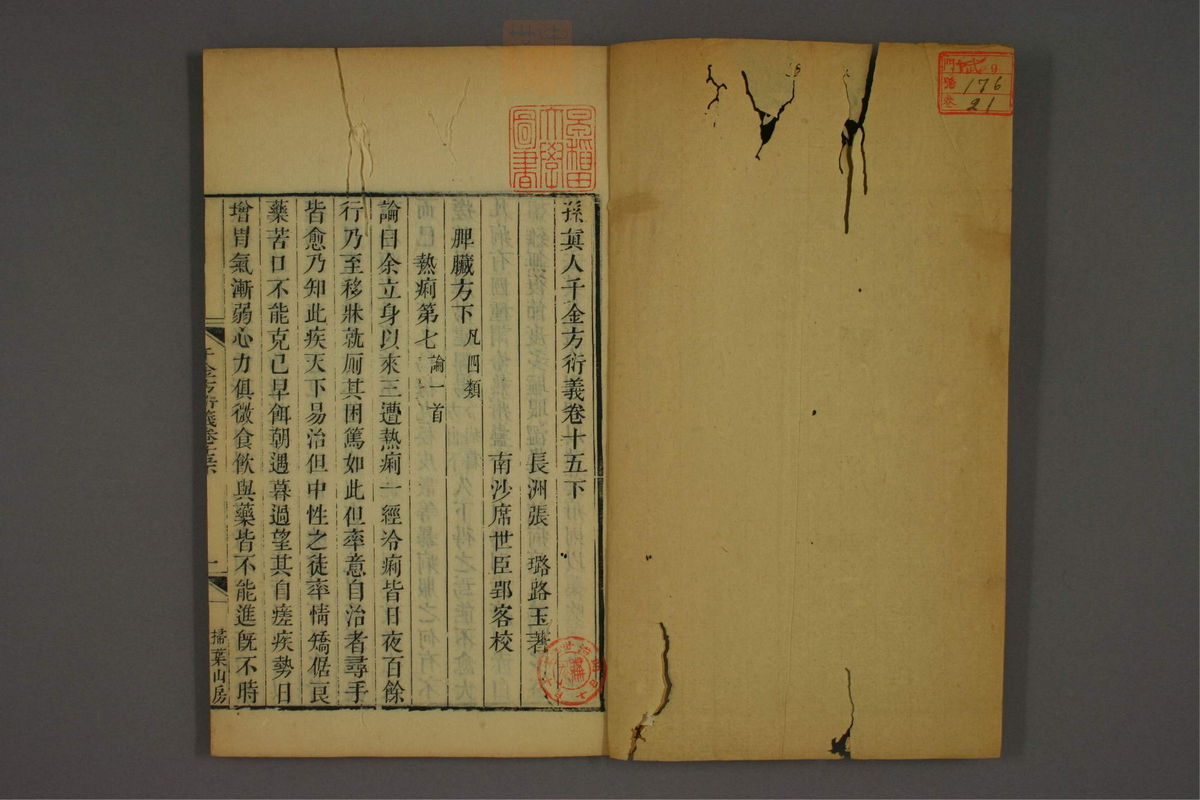 孫眞人千金方衍義卷十五下
長洲張 璐路玉著
南沙席世臣郢客校
脾臟方下凡四類
熱痢第七論一首
論曰余立身以來三遭熱痢一經冷痢皆日夜百餘
行乃至移牀就厠其困篤如此但率意自治者尋手
皆愈乃知此疾天下易治但中性之徒率情矯倨良
藥苦口不能克己早餌朝遇暮過望其自瘥疾勢日
增胃氣漸弱心力俱微食飲與藥皆不能進旣不時
千金方衍義卷
掃葉山房
早稻田大學圖書
門
號 176
卷 21